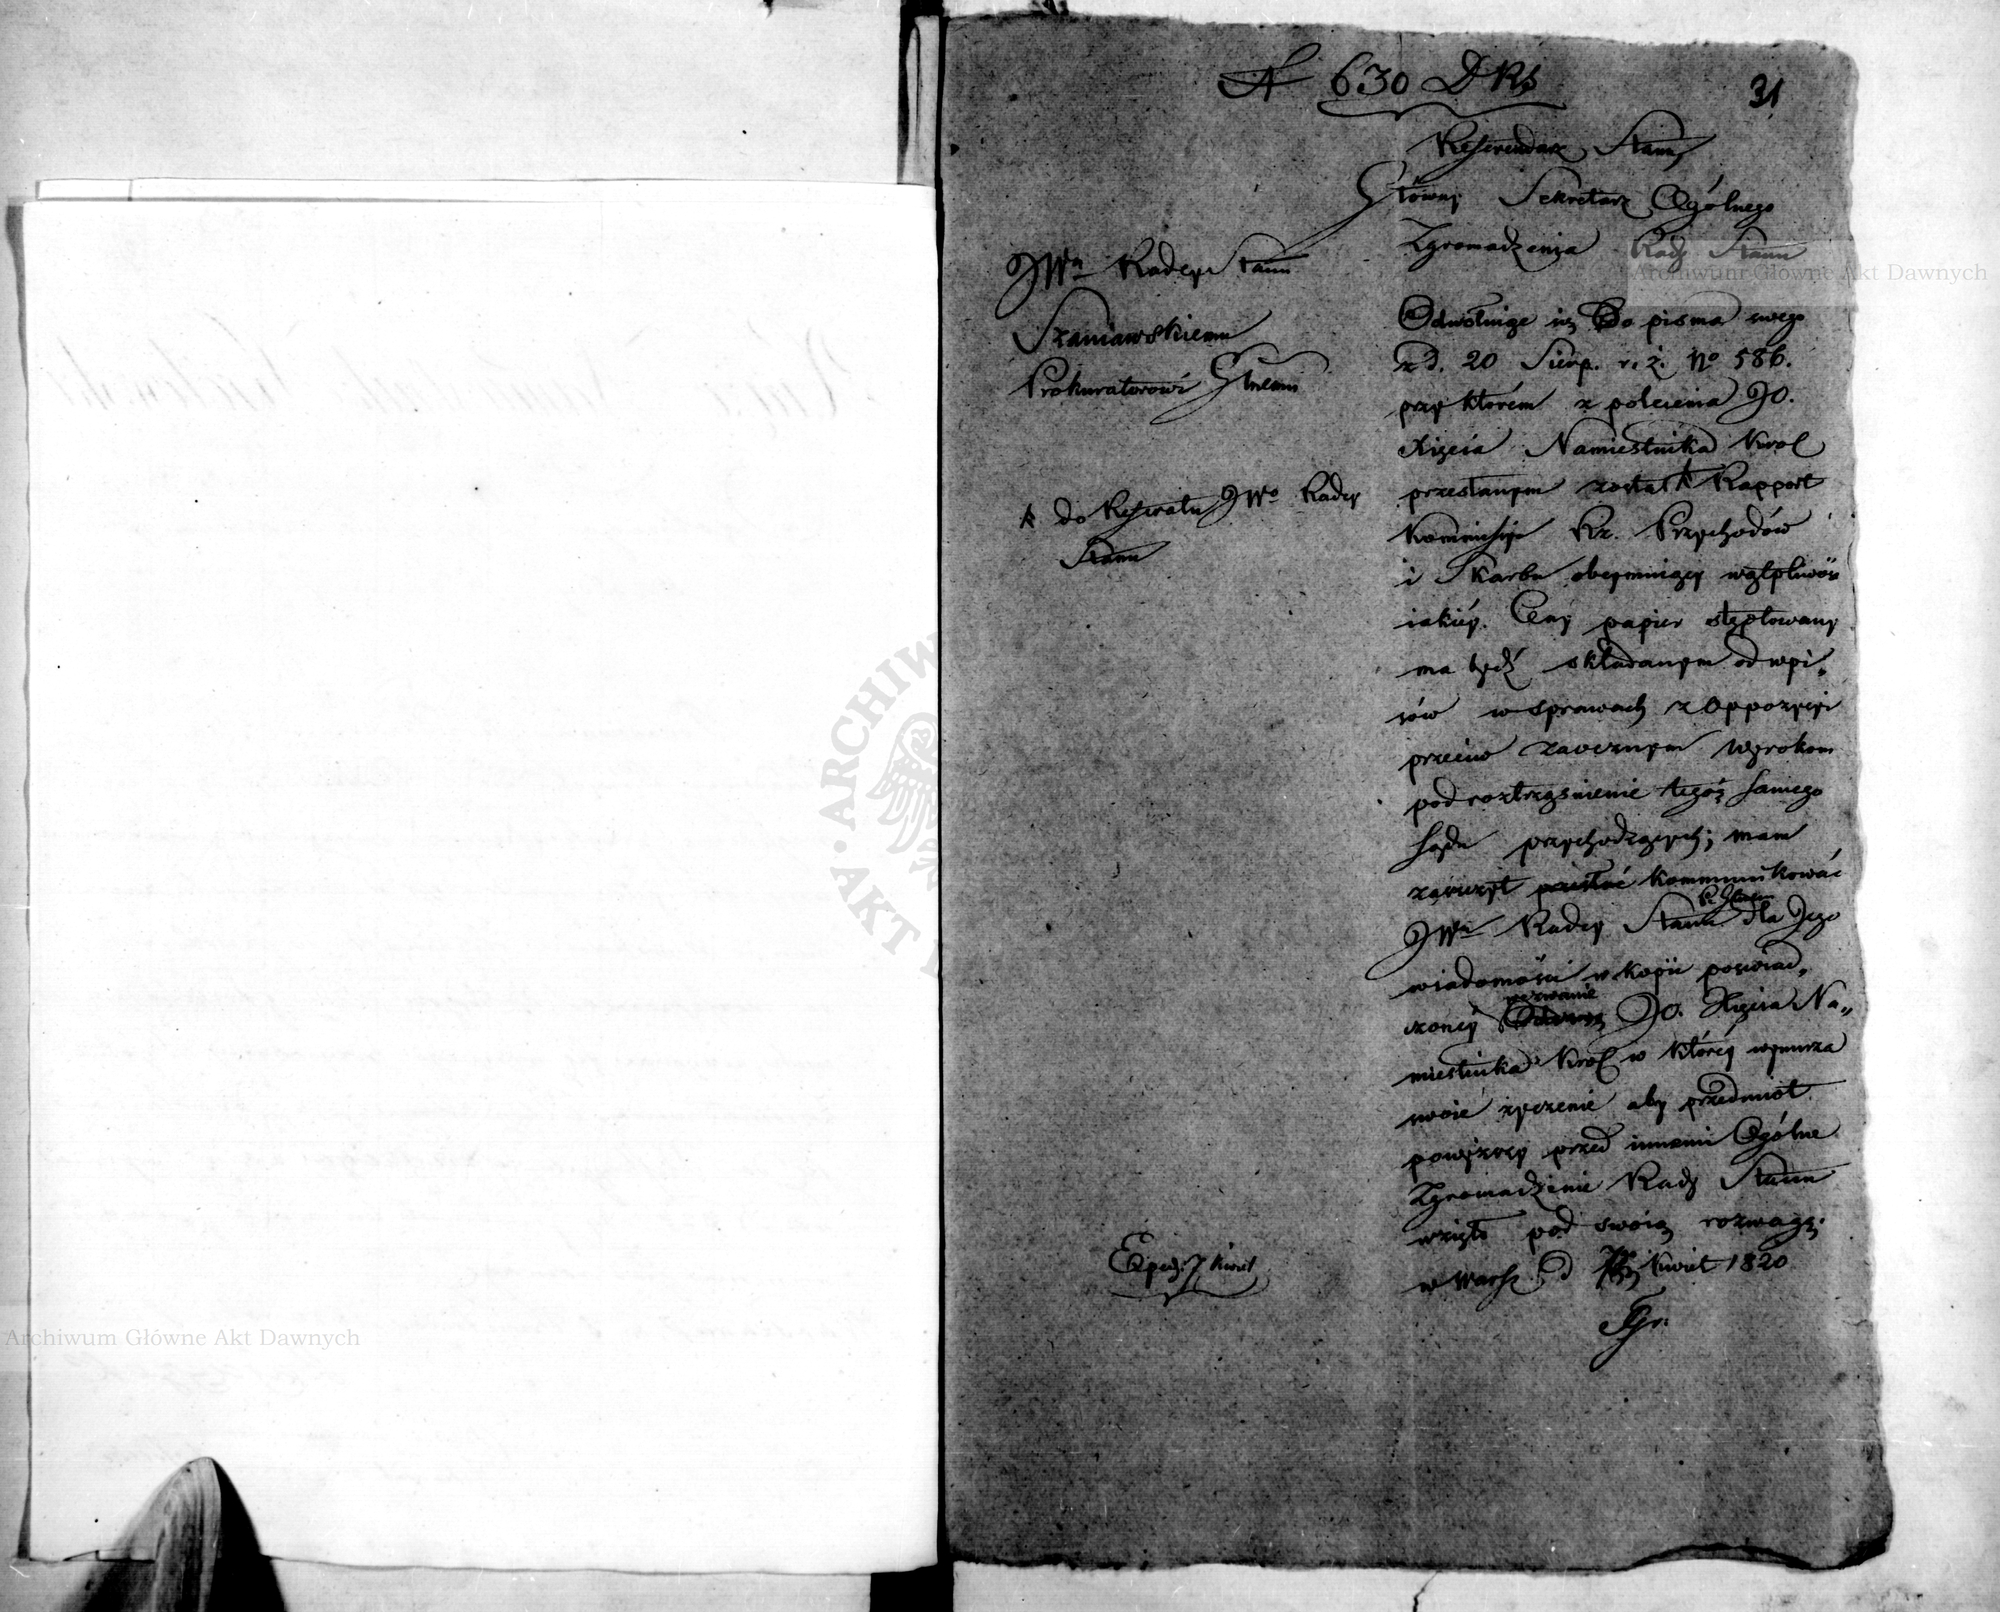 N 630 DRS
31
Referendarz Stanu
Główny Sekretarz Ogólnego
Zgromadzenia Rady Stanu
JWu Radcy Stanu
Szaniawskiemu
Prokuratorowi Głnemu
Odwołuiąc się Do pisma swego
z d. 20 Sierp. r. z. No 586.
przy którem z polecenia JO.
Xięcia Namiestnika Krol
przesłanym został Rapport
Kommissyi Rz. Przychodów
i Skarbu obeymuiący wątpliwość
do Referatu JWo Radcy
Stanu
iakiéy Ceny papier stęplowany
ma bydź składanym od wpi„
sów w sprawach z Oppozycyi
przeciw zaocznym wyrokom
pod roztrząśnienie tegoż samego
Sądu przychodzących; mam
zaszczyt kommunikować
JWu Radcy Stanu dla Jego
wiadomości w kopii poświad„
czonéy wezwanie JO. Xięcia Na„
miestnika Krol w któréy wynurza
swoie życzenie aby przedmiot
powyższy przed innemi Ogólne
Zgromadzenie Rady Stanu
wzięło pod swoią rozwagę.
w Warsz. d Kwiet 1820
Exped. 7 Kwiet
Archiwum Główne Akt Dawnych
Archiwum Główne Akt Dawnych
ARCHIW
AKT